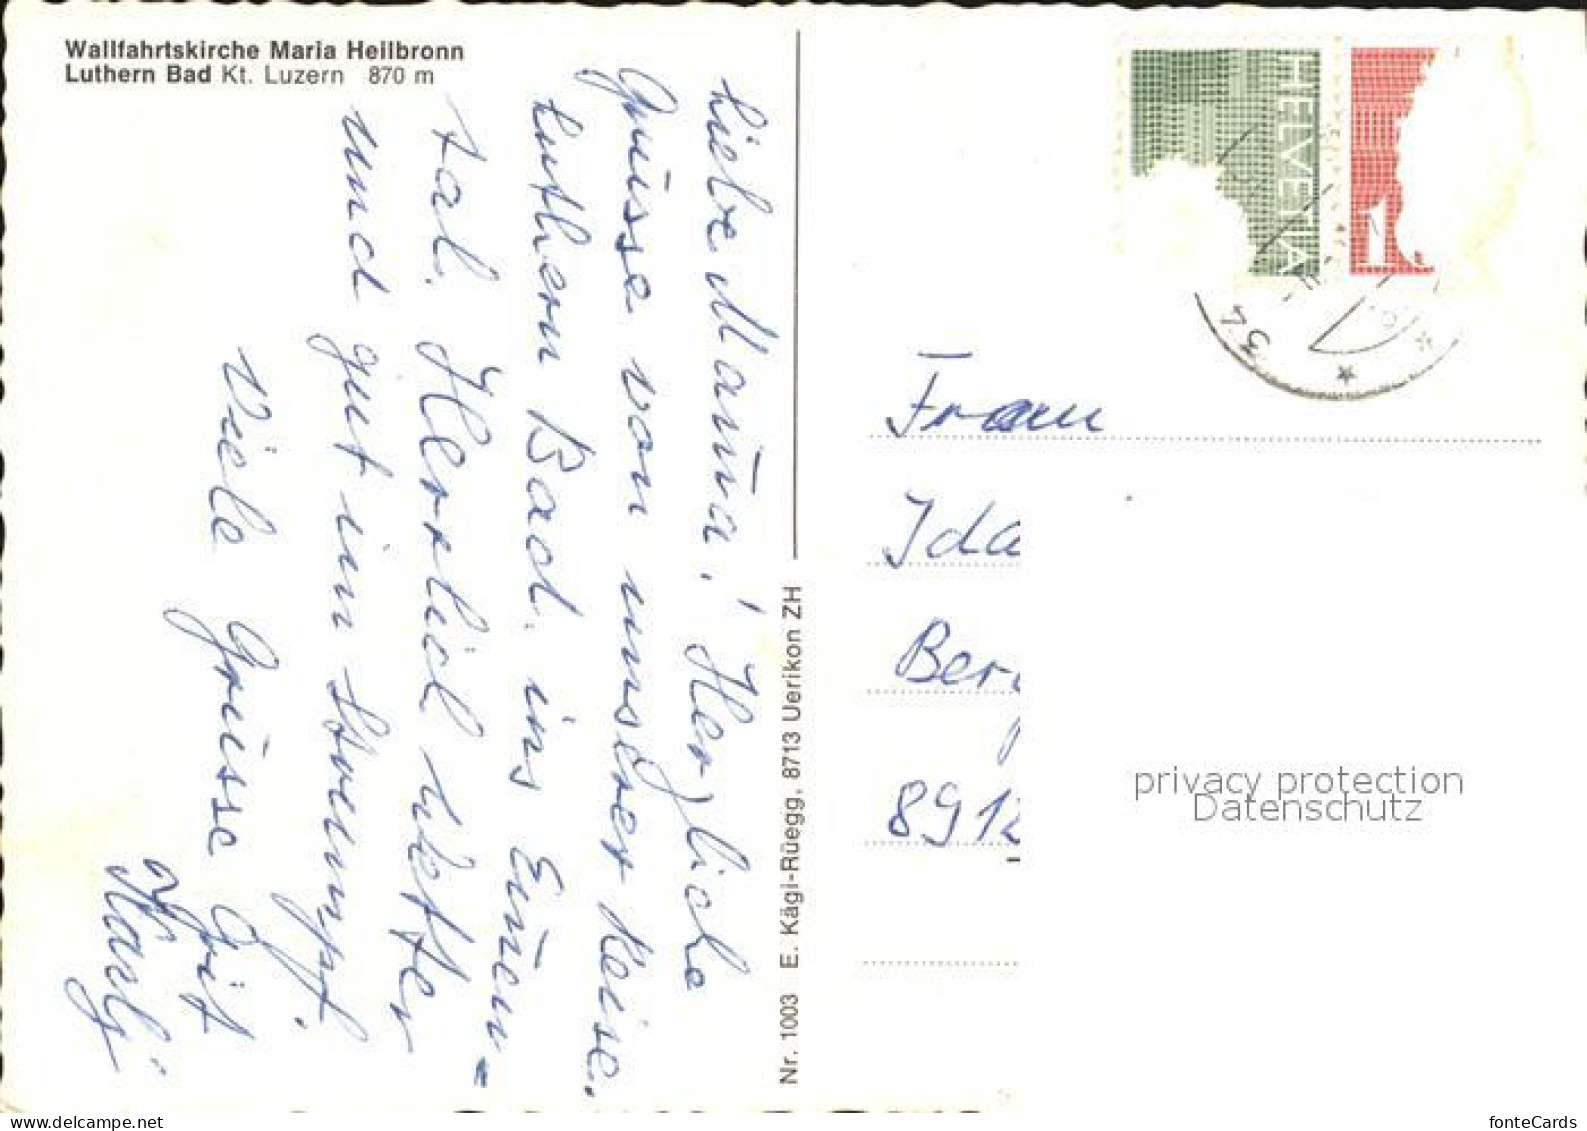 Wallfahrtskirche Maria Heilbronn
Luthern Bad Kt. Luzern 870 m
Liebe Mama! Herzliche
Grüsse von unserer Reise.
Luthern Bad. ins
tal. Herrlich Wetter
und gut im Strumpf.
Viele Grüsse Grit
Nr. 1003 E. Kägi-Rüegg, 8713 Uerikon ZH
HELVETIA
1
34
Frau
Ida
Ber
8912
privacy protection
Datenschutz
www.delcampe.net
fonteCards